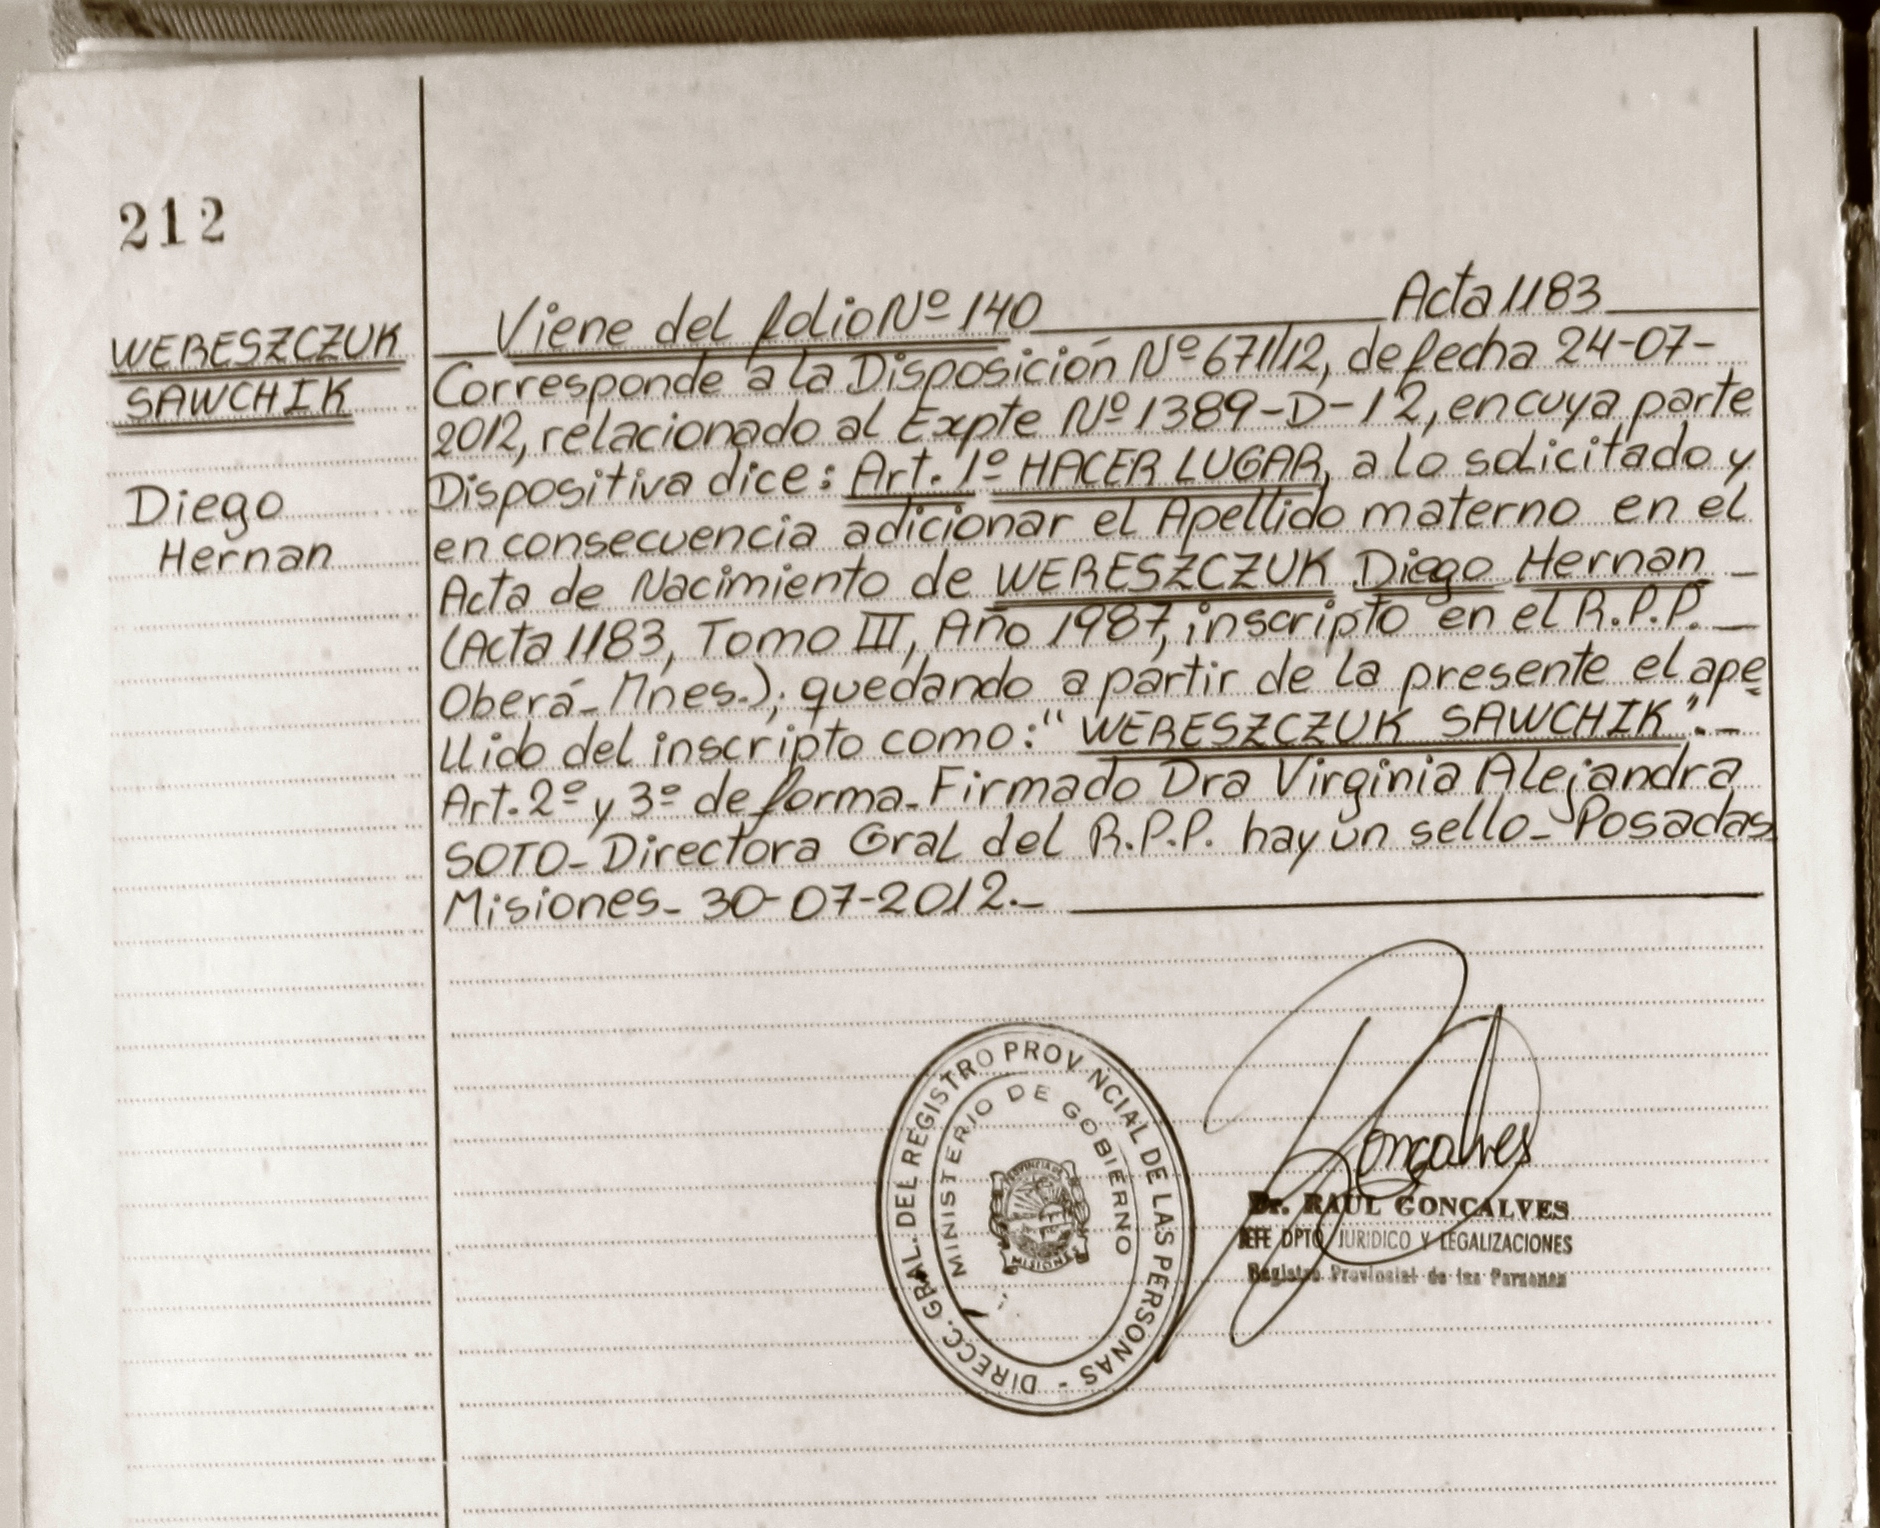 212
WERESZCZUK
SAWCHIK
Diego
Hernan
Viene del folio Nº 140 Acta 1183
Corresponde a la Disposición Nº 671/12, de fecha 24-07-
2012, relacionado al Expte Nº 1389-D-12, en cuya parte
Dispositiva dice: Art. 1º HACER LUGAR, a lo solicitado y
en consecuencia adicionar el Apellido materno en el
Acta de Nacimiento de WERESZCZUK Diego Hernan
(Acta 1183, Tomo III, Año 1987, inscripto en el R.P.P.
Oberá- Mnes.); quedando a partir de la presente el ape
llido del inscripto como: "WERESZCZUK SAWCHIK".-
Art. 2º y 3º de forma- Firmado Dra Virginia Alejandra
SOTO- Directora Gral del R.P.P. hay un sello- Posadas
Misiones- 30-07-2012.-
DIRECC. GRAL. DEL REGISTRO PROV NCIAL DE LAS PERSONAS -
MINISTERIO DE GOBIERNO
PROVINCIA DE
MISIONES
Goncalves
Dr. RAUL GONCALVES
JEFE DPTO JURIDICO Y LEGALIZACIONES
Registro Provincial de las Personas